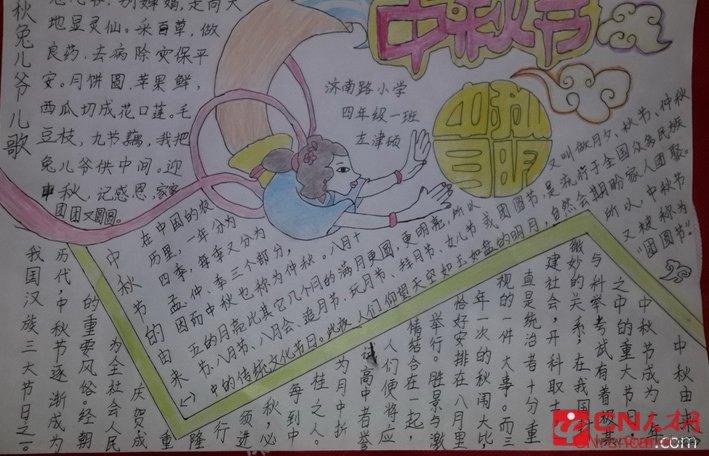 秋兔儿爷儿歌
地显灵仙。采百草,做
良药,去病除灾保平
安。月饼圆,苹果鲜,
西瓜切成花口莲。毛
豆枝,九节藕,我把
兔儿爷供中间。迎
中秋,记感恩,家家
团团又圆圆。
中秋节
济南路小学
四年级一班
左津硕
中秋
中秋节的由来(一)
在中国的农
历里,一年分为
四季,每季又分为
孟、仲、季三个部分,
因而中秋也称为仲秋。八月十
五的月亮比其它几个月的满月更圆,更明亮,所以又叫做月夕、秋节、仲秋
节、八月节、八月会、追月节、玩月节、拜月节、女儿节或团圆节,是流行于全国众多民族
中的传统文化节日。此夜,人们仰望天空如玉如盘的明月,自然会期盼家人团聚。
所以,中秋节
又被称为
“团圆节”。
中秋由来
中秋节成为一年
之中的重大节日
与科举考试有着极其
微妙的关系,在我国
建社会,开科取士
直是统治者十分重
视的一件大事。而三
年一次的秋闱大比
恰好安排在八月里
举行。胜景与激
情结合在一起,
人们便将应
试高中者誉
为月中折
桂之人。
每到中
秋,必
须
行
隆重
庆贺,成
为全社会人民
的重要风俗,经朝
历代,中秋节逐渐成为
我国汉族三大节日之一。
CN人才